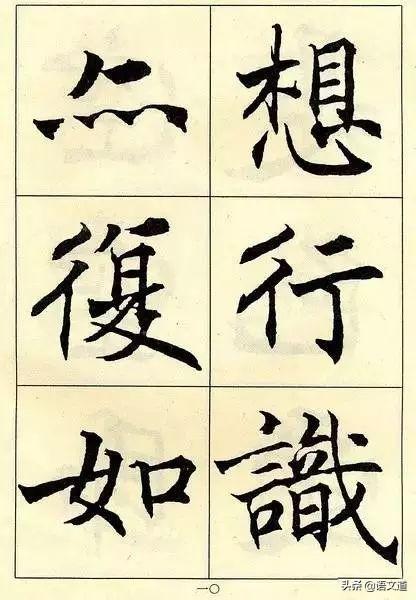 想行識
亦復如
一〇
头条 @语文道